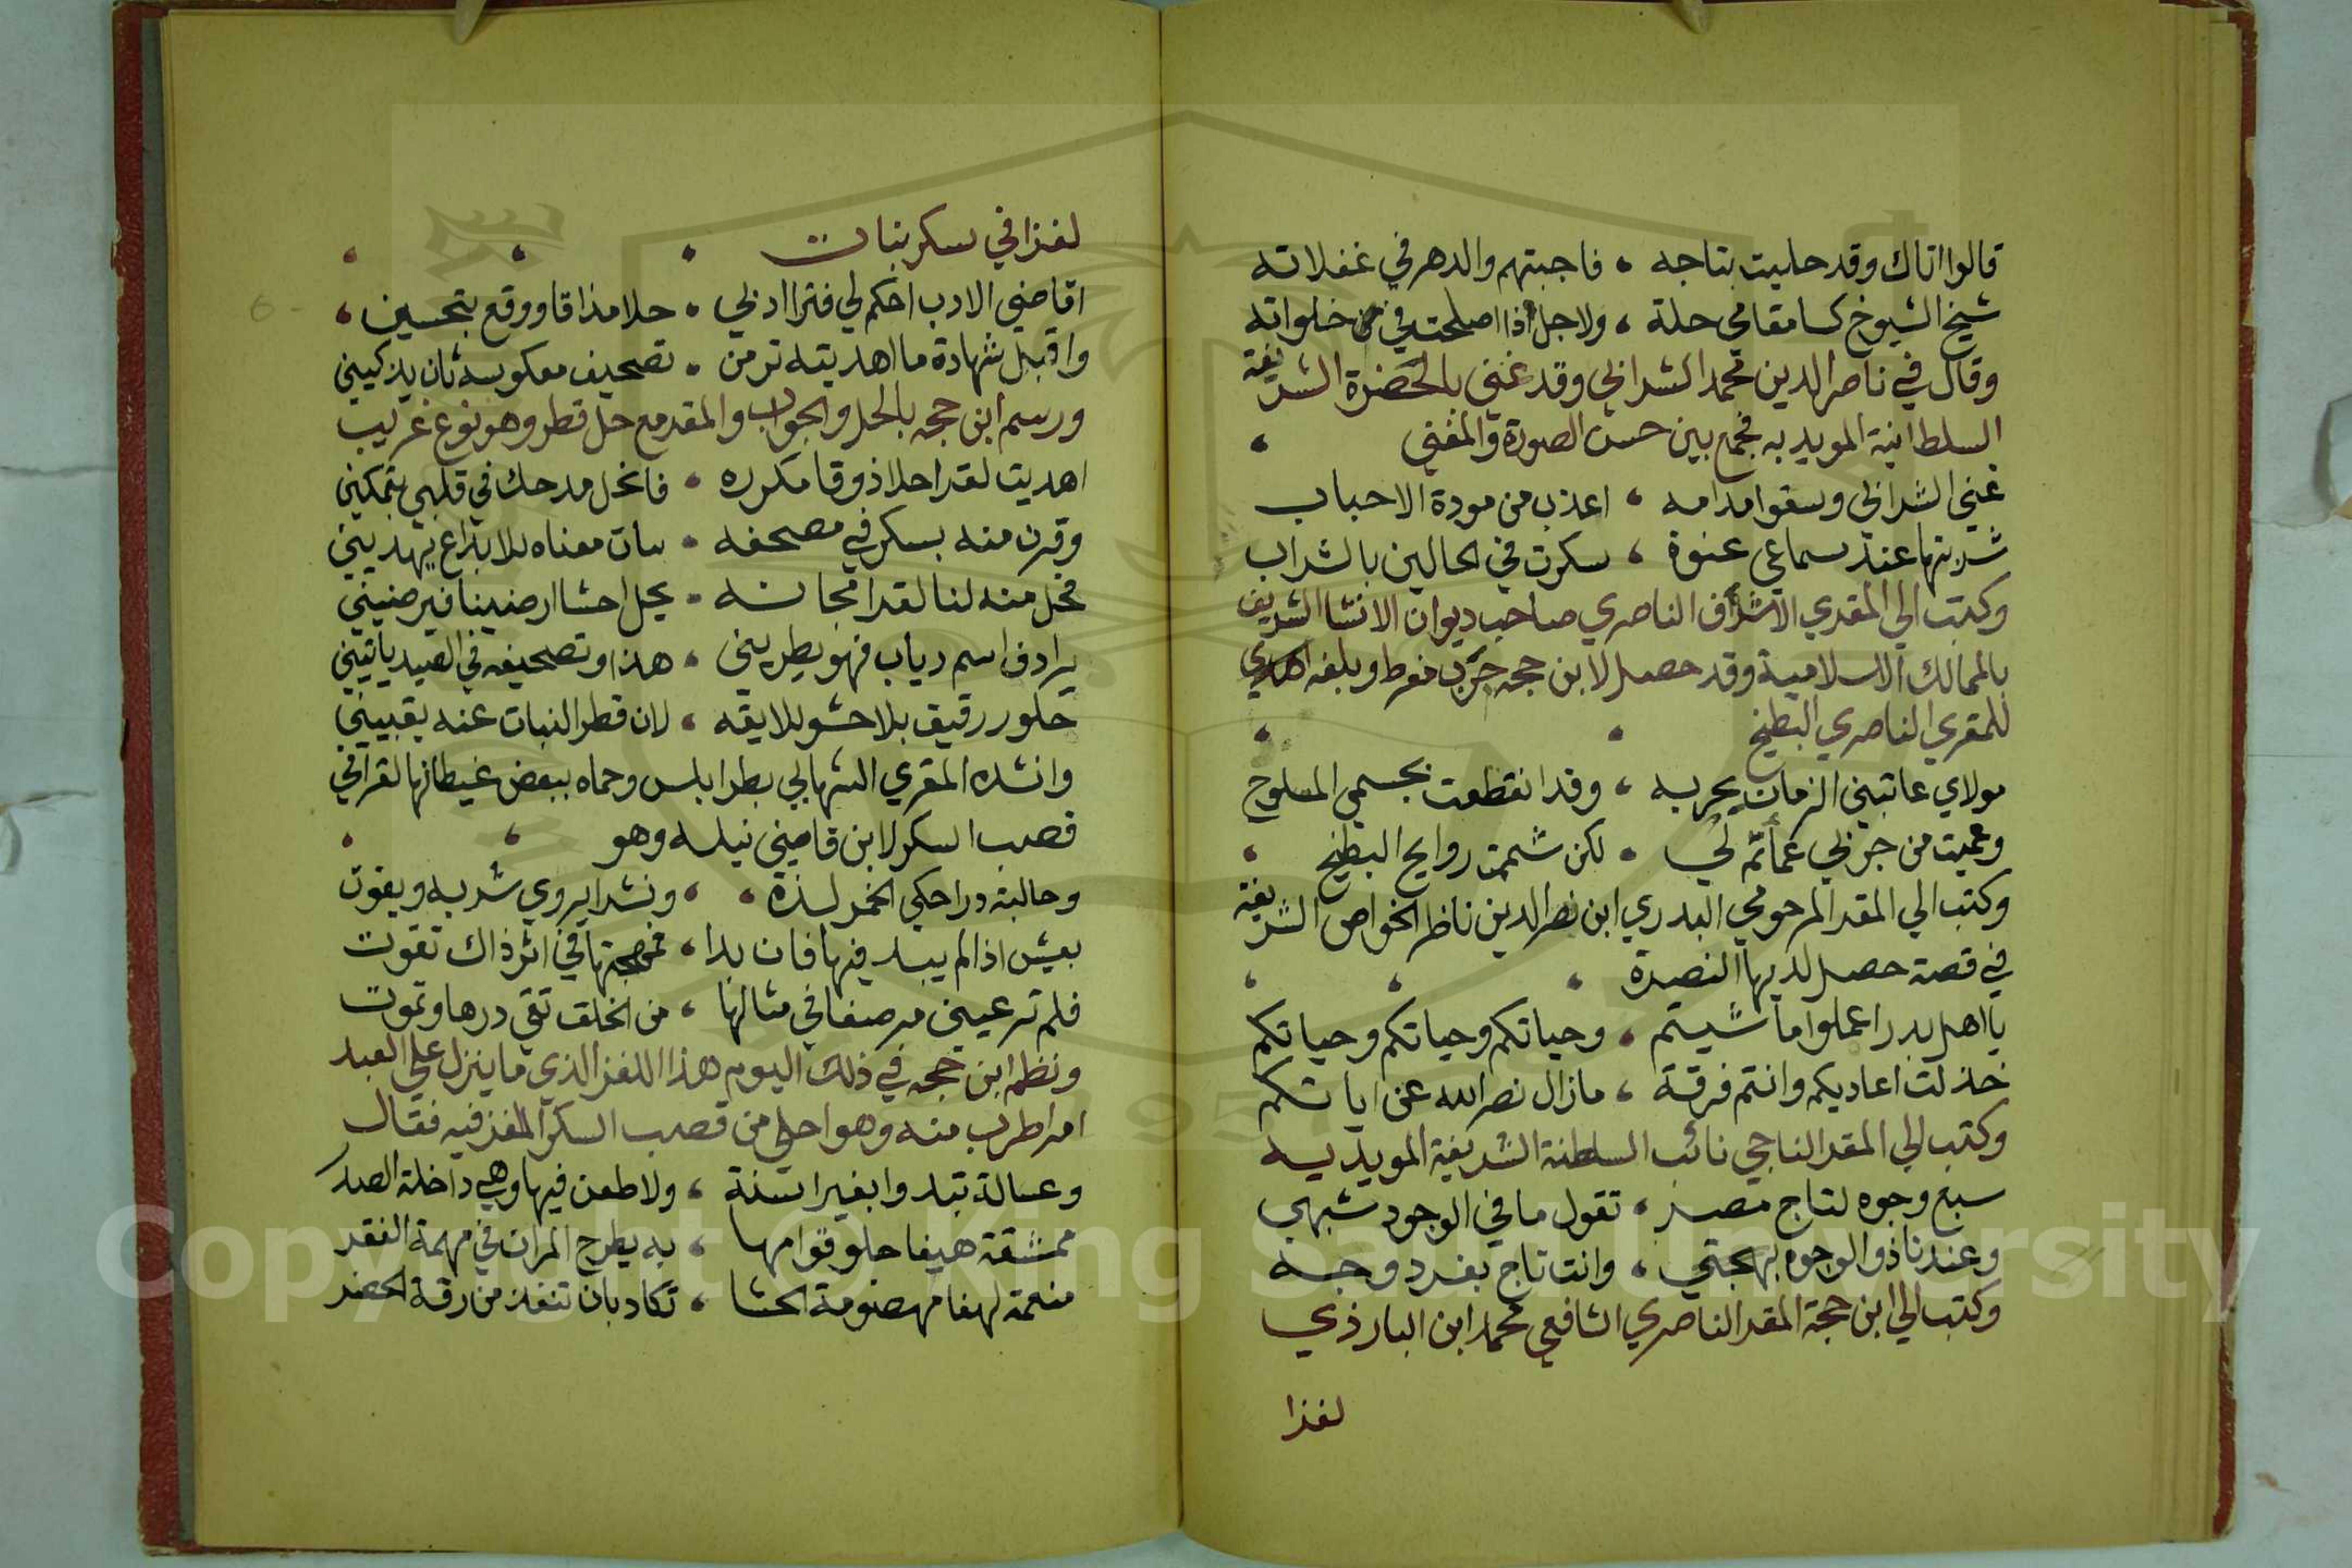 قالوا اتاك وقد حليت بتاجه ، فاجبتهم والدهر في غفلاته
شيخ الشيوخ كسا مقامي حلة ، ولاجل ذا اصلحت في خلواته
وقال في ناصر الدين محمد الشرابي وقد غني بالحضرة الشريفة
السلطانية المويديه فجمع بين حسن الصورة والمغني ،
غني الشرابي وسقوا مدامه ، اعذب من مودة الاحباب
شربتها عند سماعي عنوة ، سكرت في الحالين بالشراب
وكتب الي المقري الاشرف الناصري صاحب ديوان الانشا الشريف
بالممالك الاسلامية وقد حصل لابن حجه جرب مفرط وبلغه اهدي
للمقري الناصري البطيخ ، ،
مولاي عاتبني الزمان بجربه ، وقد انقطعت بجسمي المسلوخ
وعميت من جربي عما تم لي ، لكن شممت روايح البطيخ ،
وكتب الي المقر المرحومي البدري ابن نصر الدين ناظر الخواص الشريفة
في قصة حصل لديها النصرة ، ، ،
يا اهل بدر اعملوا ما شيتم ، وحياتكم وحياتكم وحياتكم
خذلت اعاديكم وانتم فرقة ، مازال نصر الله عن اياتكم
وكتب الي المقر التاجي نائب السلطنة الشريفية المويديه
سبع وجوه لتاج مصر ، تقول ما في الوجود شبهي
وعندنا ذو الوجوه بهجتي ، وانت تاج بفرد وجه
وكتب الي ابن حجة المقر الناصري الشافعي محمد ابن البارذي
لغزا
لغزا في سكر نبات ، ، ،
اقاضي الادب احكم لي فترا ادبي ، حلا مذاقا ووقع بتحسين ،
واقبل شهادة ما اهديته ترمن ، تصحيف معكوسه ثان يزكيني
ورسم ابن حجه بالحل والجواب والمقدمع حل قطر وهو نوع غريب
اهديت لغزا حلا ذوقا مكرره ، فانحل مدحك في قلبي بتمكين
وقرن منه بسكر في مصحفه ، بيان معناه للابداع يهديني
فحل منه لنا لغزا مجانسه ، يحل احشا ارضينا فيرضيني
يرادف اسم رباب فهو يطربني ، هذا وتصحيفه في الصيد ياتيني
حلو رقيق بلا حشو يلايقه ، لان قطر النبات عنه يقبيني
وانشده المقري الشهابي بطرابلس وحماه ببعض غيطانها لغزا في
قصب السكر لابن قاضي نيله وهو ، ،
وحالبة درا حكي الخمر لذة ، ونشرا يروي شربه ويقوت
بعيش اذا لم يبد فيها فان بدا ، فمهجتها في اثر ذاك تفوت
فلم تر عيني مرضعا في مثالها ، من الخلق تقي درها وتموت
ونظم ابن حجه في ذلك اليوم هذا اللغز الذي ما ينزل علي العبد
امر اطرب منه وهو احلي من قصب السكر الملغز فيه فقال
وعسالة تبدوا بغير اسنة ، ولا طعن فيها وهي داخلة الصدر
ممشقة هيفا حلو قوامها ، به يطرح المران في مهمة الفقر
منعمة لهفا مهضومة الحشا ، تكاد بان تنفد من رقة الخصر
Copyright © King Saud University